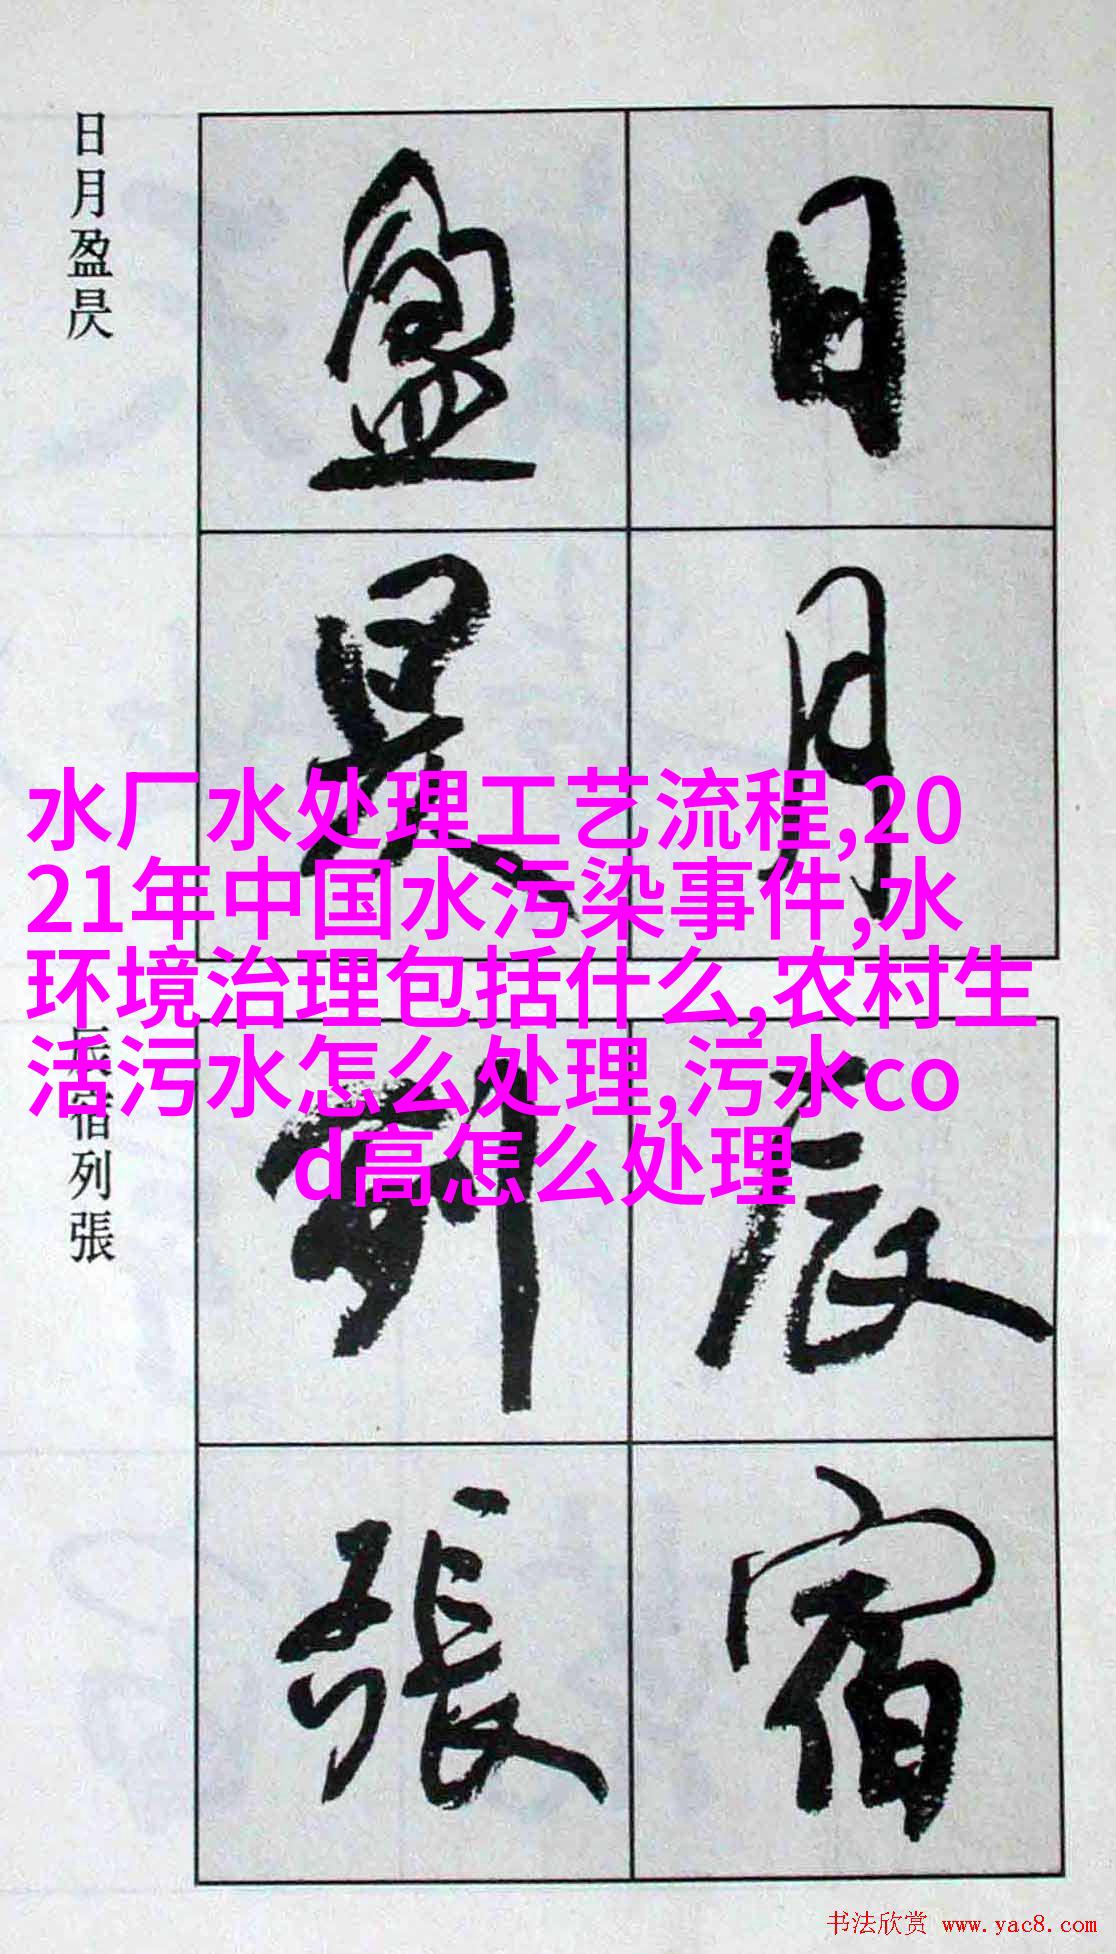 日月盈昃
日月
盈昃
水厂水处理工艺流程,20
21年中国水污染事件,水
环境治理包括什么,农村生
活污水怎么处理,污水co
d高怎么处理
辰宿列張
辰宿
列張
书法欣赏 www.yac8.com